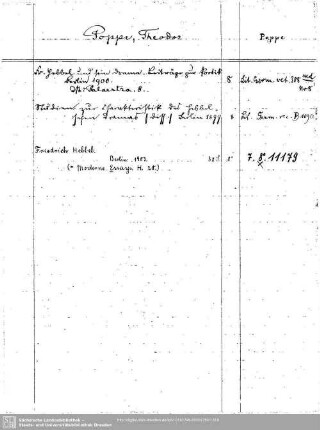 Poppe, Theodor
Poppe
Fr. Hebbel und sein Drama. Beiträge zur Poetik
Berlin 1900.
Aus: Palaestra, 8.
8
Lit. Germ. vet. 388
Studien zur Charakteristik des Hebbel-
schen Dramas (Diss.) Berlin 1899
8
Lit. Germ. rec. B
Friedrich Hebbel
Berlin, 1902.
8°
7. 8° 11179
(= Moderne Essays H. 28.)
Sächsische Landesbibliothek -
Staats- und Universitätsbibliothek Dresden